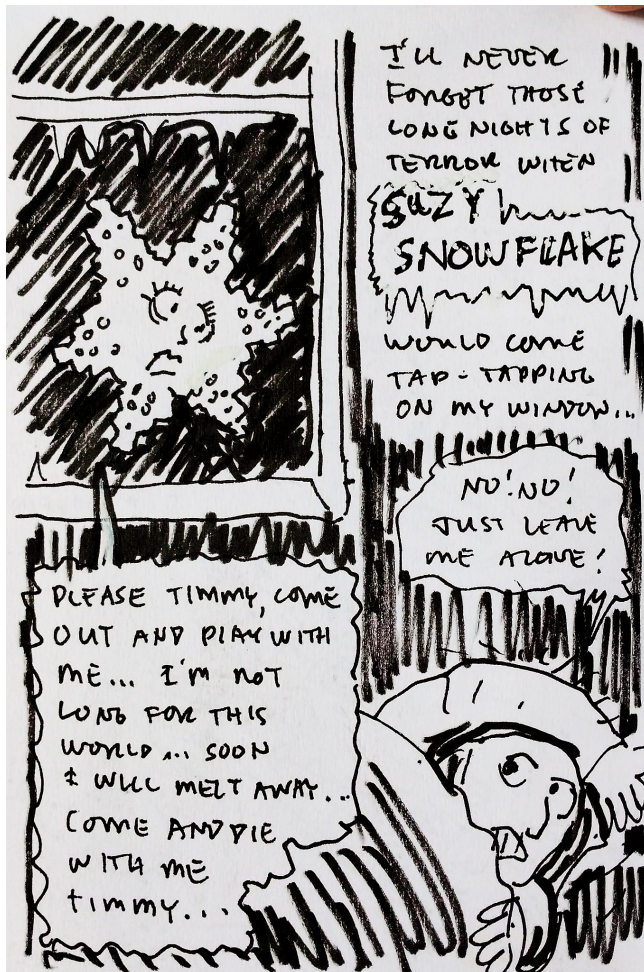 I'LL NEVER
FORGET THOSE
LONG NIGHTS OF
TERROR WHEN
SUZY
SNOWFLAKE
WOULD COME
TAP-TAPPING
ON MY WINDOW...
NO! NO!
JUST LEAVE
ME ALONE!
PLEASE TIMMY, COME
OUT AND PLAY WITH
ME... I'M NOT
LONG FOR THIS
WORLD... SOON
I WILL MELT AWAY...
COME AND DIE
WITH ME
TIMMY...